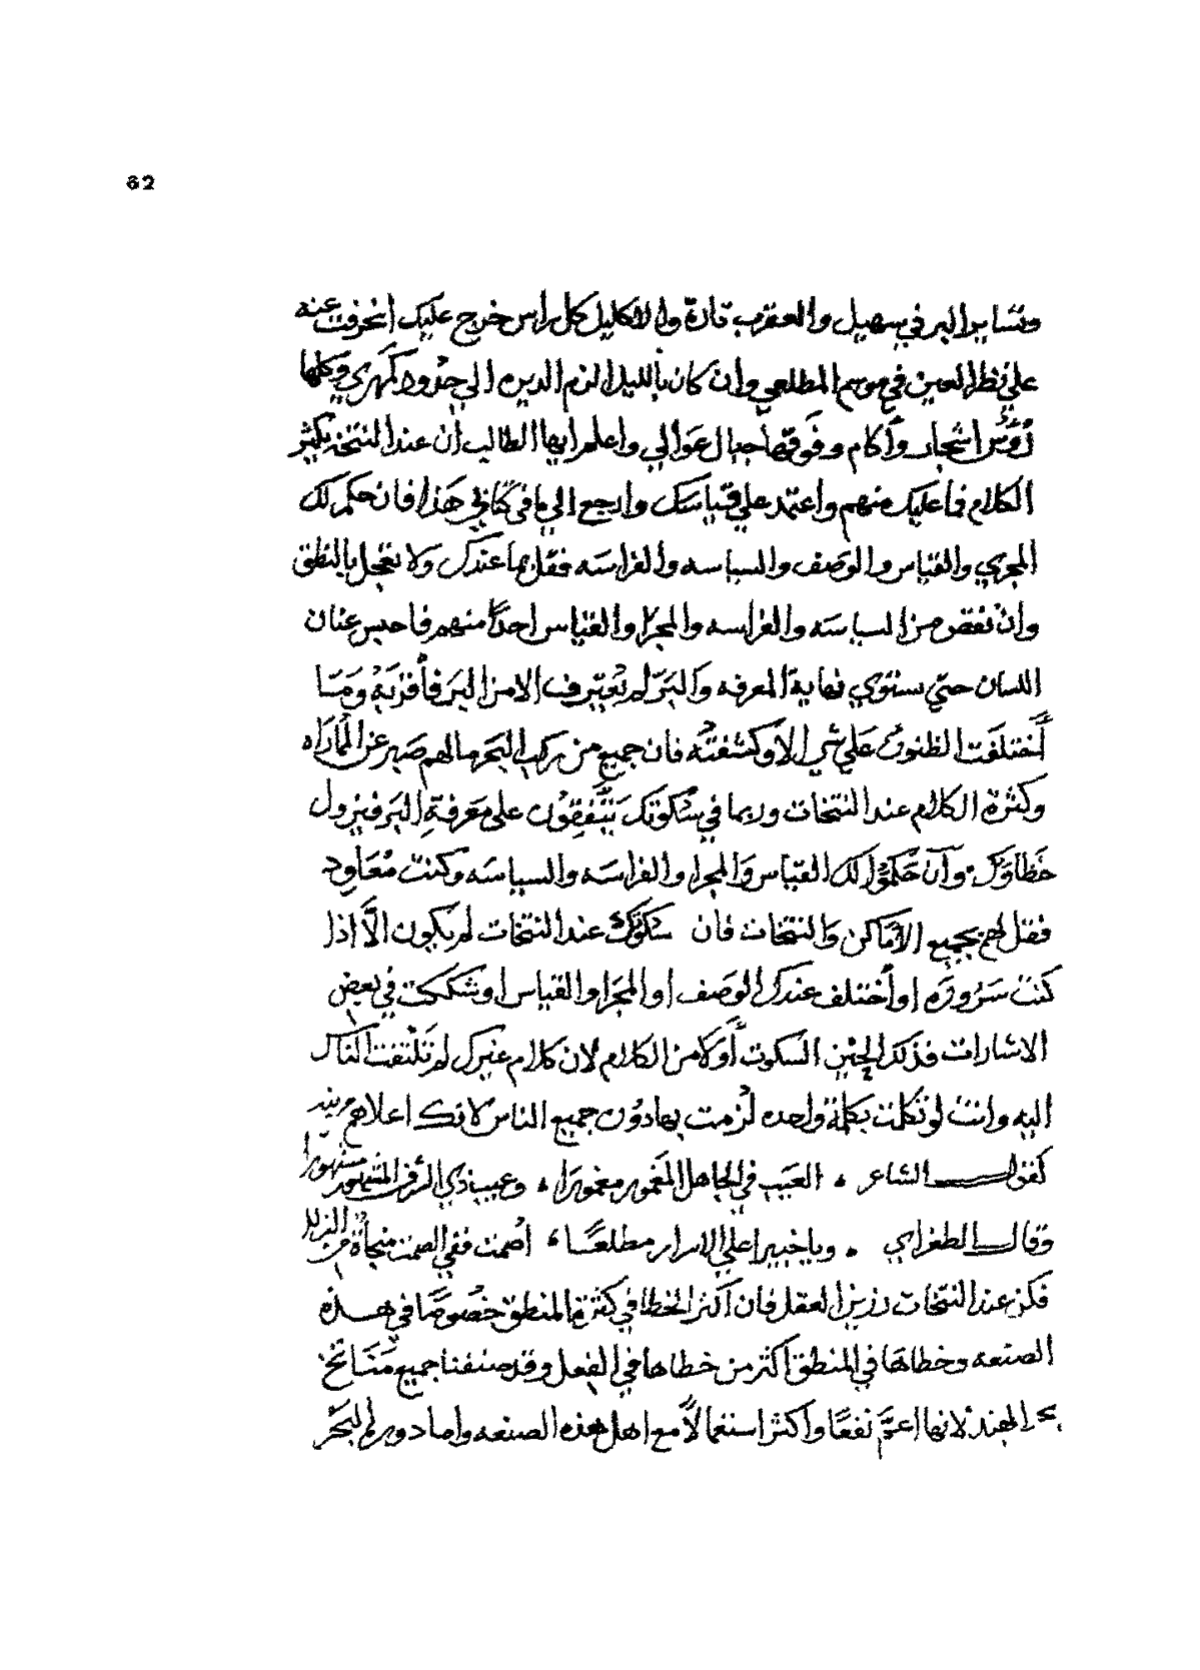 62
وتساير البر في سهيل والعقرب تارة والاكليل كل راس خرج عليك انحرفت عنه
علي نظر العين في موسم المطلعي وان كان بالليل الزم الديره الي حدود وكلها
رُؤُس اشجار وآكام وفوقها جبال عوالي واعلم ايها الطالب ان عند النتخه يكثر
الكلام فما عليك منهم واعتمد علي قياسك وارجع الي ما في كتابي هذا فان حكم لك
المجري والقياس والوصف والسياسه والفراسه فقل بما عندك ولا تعجل بالنطق
وان نقص من السياسه والفراسه والمجرا والقياس احدًا منهم فاحبس عنان
اللسان حتي يستوي نهاية المعرفه والبَرّ لم تعترف الا من البر فأقربه وَمَا
أختلفَت الظنون عَلي شي الا وكشفته فان جميع من يركب البحر مالهم صبر عن
وكثرة الكلام عند النتخات وربما في سكوتك يَتَّفِقُون على مَعَرفةِ البَر فيزول
خَطاؤك وان حكموا لك القياس وَالمجرا والفراسَه والسياسَه وكنت مُعَاود
فقل لهم بجميع الأمَاكن وَالنتخات فان سكوتك عند النتخات لم يكون الَّا اذا
كنت او أختلف عندك الوَصف او المجَرا والقياس او شككت في بعض
الاشارات فذلك الحِيْن السكوت أَوْلا من الكلام لان كلام غيرك لم تلتفت الناس
اليه وانت لو تكلمت بكلمة واحده لُزمت بها دوُن جميع الناس لانك اعلاهم
كقول الشاعر . العَيب في الجاهل المَغمور مغمورَا . وعيب ذي الشرف المشهور مشهورا
وقال الطغراي . ويا خبيرا علي الاسرار مطلعًا ، اصُمت ففي الصمت منجاة من الزلل
فكن عند النتخات رزين العقل فان أكثر الخطا في كثرة المنطق خصُوصًا في هذه
الصنعه وخطاها في المنطق أكثر من خطاها في الفعل وقد صنفنا جميع مَنَاتخ
بر الهند لانها اعمَّ نفعًا وأكثر استعمالًا مع اهل هذه الصنعه واما